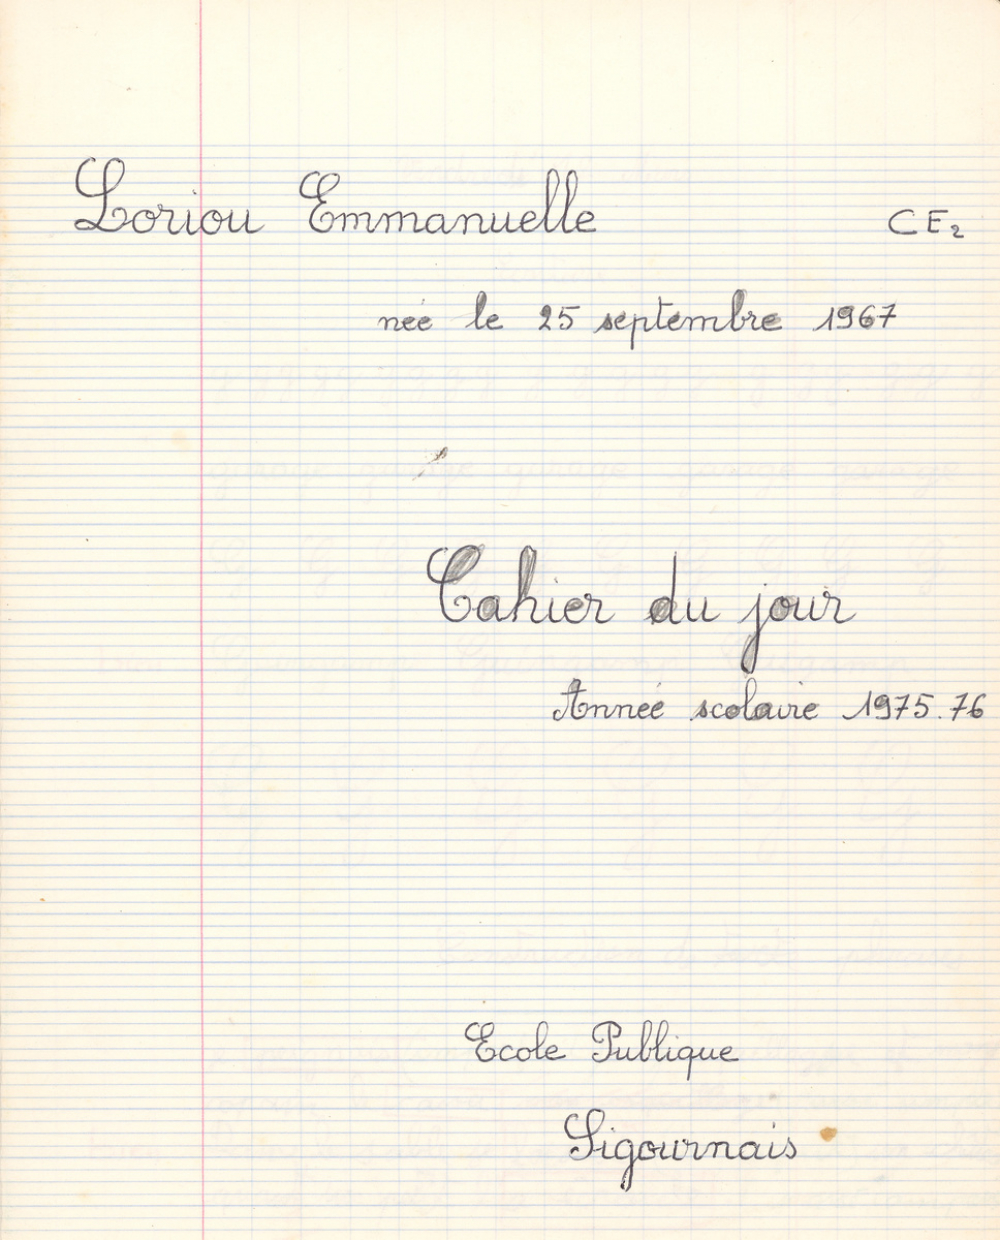 Loriou Emmanuelle CE2
née le 25 septembre 1967
Cahier du jour
Année scolaire 1975.76
Ecole Publique
Sigournais